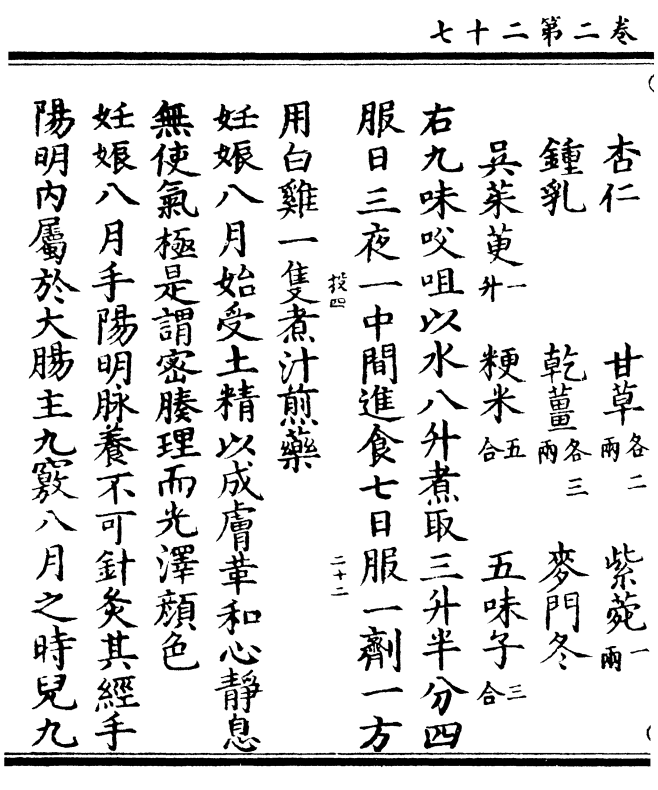 卷二第二十七
杏仁 甘草各二兩 紫菀一兩
鍾乳 乾薑各三兩 麥門冬
吳茱萸一升 粳米五合 五味子三合
右九味㕮咀以水八升煮取三升半分四
服日三夜一中間進食七日服一劑一方
投四
二十二
用白雞一隻煮汁煎藥
妊娠八月始受土精以成膚革和心靜息
無使氣極是謂密腠理而光澤顏色
妊娠八月手陽明脉養不可針灸其經手
陽明內屬於大腸主九竅八月之時兒九